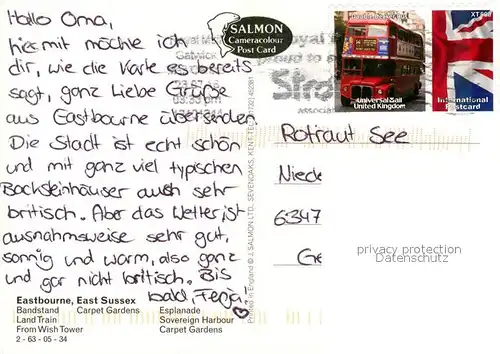 Hallo Oma,
hiermit möchte ich
dir, wie die Karte es bereits
sagt, ganz Liebe Grüße
aus Eastbourne übersenden.
Die Stadt ist echt schön
und mit ganz viel typischen
Backsteinhäuser auch sehr
britisch. Aber das Wetter ist
ausnahmsweise sehr gut,
sonnig und warm, also ganz
und gar nicht britisch. Bis
bald, Fenja!
Eastbourne, East Sussex
Bandstand Carpet Gardens Esplanade
Land Train Sovereign Harbour
From Wish Tower Carpet Gardens
2 - 63 - 05 - 34
SALMON
Cameracolour
Post Card
Printed in England © J. SALMON LTD., SEVENOAKS, KENT
Universal Mail
United Kingdom
International
Postcard
Rotraut See
Niede
6347
Ge
privacy protection
Datenschutz